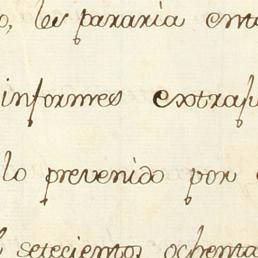 o, le pararia
informes
lo prevenido por
setecientos ochenta